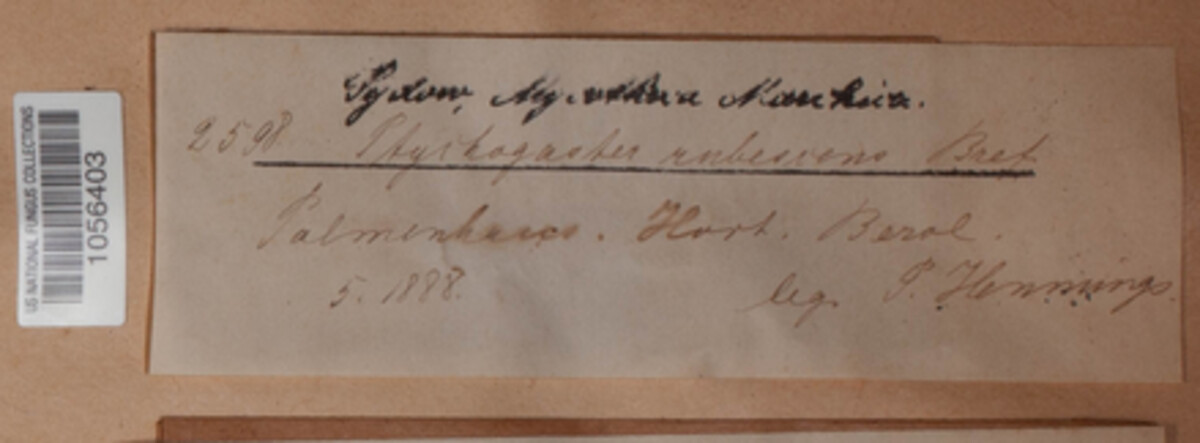 US NATIONAL FUNGUS COLLECTIONS
1056403
Sydow, Mycotheca Marchica.
2598 Ptychogaster rubescens Bref.
Palmenhaus. Hort. Berol.
5. 1888.
leg. P. Hennings.